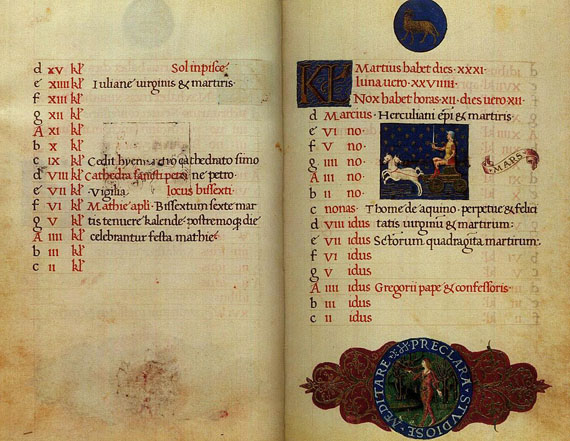 d xv kł Sol in pisce·
e xiiii kł Iuliane virginis & martiris·
f xiii kł
g xii kł
A xi kł
b x kł
c ix kł Cedit hyems
d viii kł Cathedra sancti petri
e vii kł Vigilia· locus bissexti·
f vi kł Mathie apli· Bissextum sexte mar
g v kł tis tenuere kalende postremoq; die
A iiii kł celebrantur festa mathie·
b iii kł
c ii kł
KL Martius habet dies·XXXI·
luna vero·XXVIIII·
Nox habet horas·XII·dies vero·XII·
d Marcius· Herculiani epi & martiris·
e vi no·
f v no·
g iiii no·
A iii no·
b ii no·
MARS
c nonas· Thome de aquino· perpetue & felici
d viii idus tatis virginū & martirum·
e vii idus Sctorum quadragīta martirum·
f vi idus
g v idus
A iiii idus Gregorii pape & confessoris·
b iii idus
c ii idus
PRECLARA STVDIOSE MEDITARE